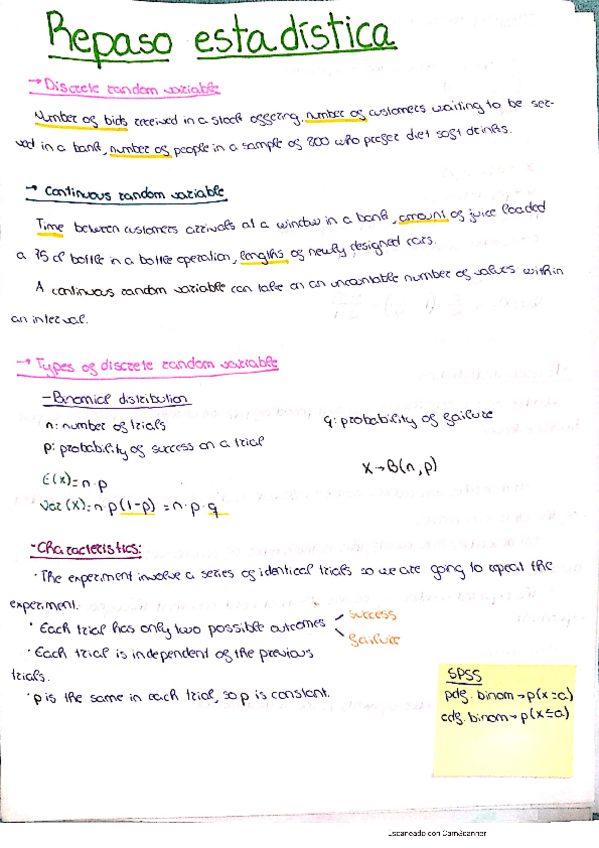 Repaso estadística
→ Discrete random variable
Number of bids received in a stock offering, number of customers waiting to be ser-
ved in a bank, number of people in a sample of 200 who prefer diet soft drinks.
→ Continuous random variable
Time between customers arrivals at a window in a bank, amount of juice loaded
a 75 cl bottle in a bottle operation, lengths of newly designed cars.
A continuous random variable can take on an uncountable number of values within
an interval.
→ Types of discrete random variable
- Binomial distribution
n: number of trials
q: probability of failure
p: probability of success on a trial
X→B(n,p)
E(x)= n·p
Var(X)= n·p(1-p) = n·p·q
·Characteristics:
· The experiment involve a series of identical trials so we are going to repeat the
experiment.
· Each trial has only two possible outcomes - success
- failure
· Each trial is independent of the previous
trials.
· p is the same in each trial, so p is constant.
SPSS
pdf. binom → p(x=a)
cdf. binom → p(x≤a)
Escaneado con CamScanner